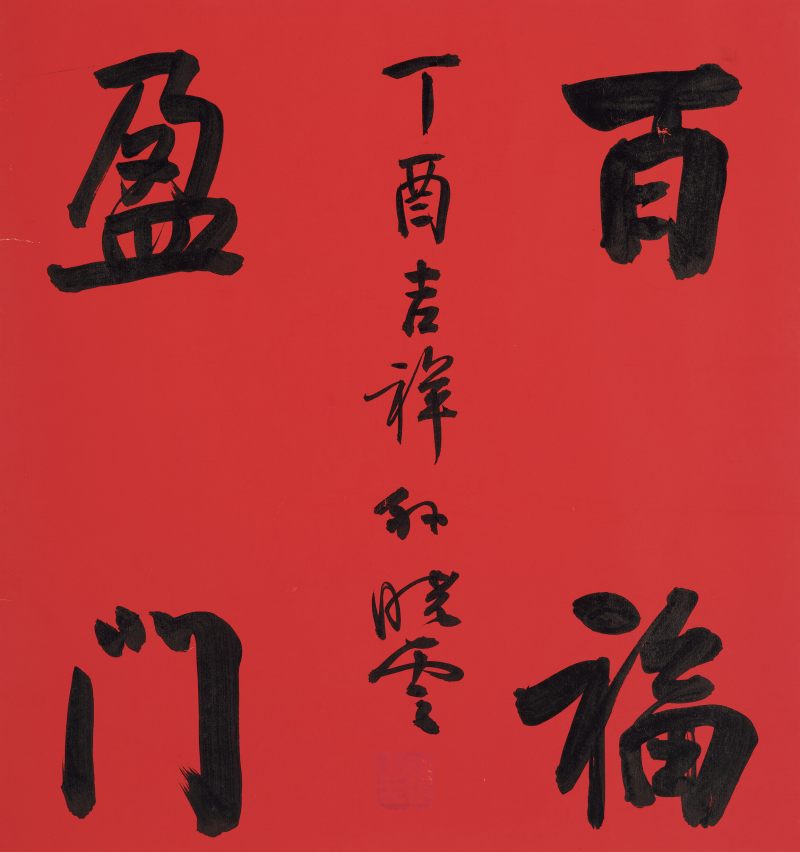 百福
盈门
丁酉吉祥孙晓雲